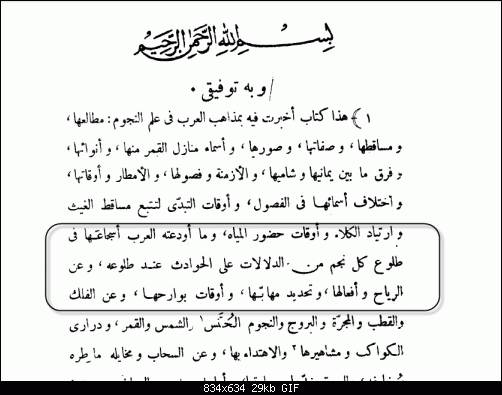 بسم الله الرحمن الرحيم
و به توفيقى ٠
١ ) هذا كتاب أخبرت فيه بمذاهب العرب فى علم النجوم: مطالعها ،
و مساقطها ، و صفاتها ، و صورها ، و أسماء منازل القمر منها ، و أنوائها ،
و فرق ما بين يمانيها و شاميها ، و الأزمنة و فصولها ، و الأمطار و أوقاتها ،
و اختلاف أسمائها فى الفصول ، و أوقات التبدّى لتتبع مساقط الغيث
و ارتياد الكلاء و أوقات حضور المياه ، و ما أودعته العرب أسجاعها فى
طلوع كل نجم من الدلالات على الحوادث عند طلوعه ، و عن
الرياح و أفعالها ، و تحديد مهابّها ، و أوقات بوارحها ، و عن الفلك
والقطب و المجرّة و البروج و النجوم الخُنّس الشمس والقمر ، و درارى
الكواكب و مشاهيرها ٢ و الاهتداء بها ، و عن السحاب و مخايله ماطره
834x634 29kb GIF